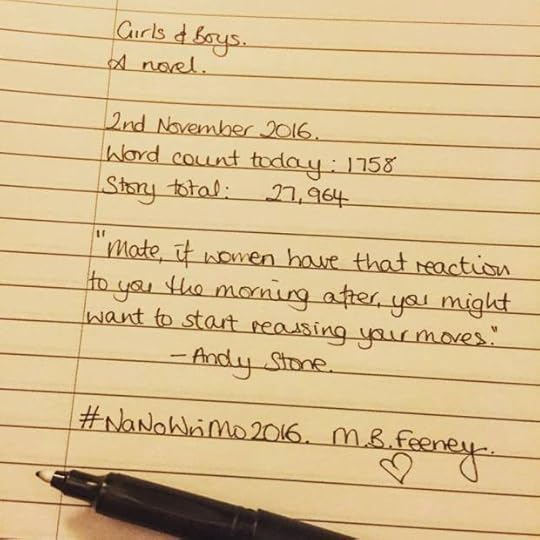 Girls & Boys.
A novel.
2nd November 2016.
Word count today: 1758
Story total: 27,964
"Mate, if women have that reaction
to you the morning after, you might
want to start reassing your moves."
- Andy Stone.
#NaNoWriMo2016. M.B.Feeney.